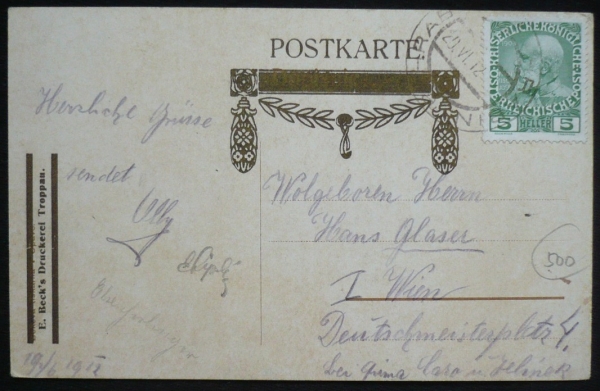 POSTKARTE
KAISERLICHE KÖNIGLICHE ÖSTERREICHISCHE POST
5 HELLER 5
Herzliche Grüsse
sendet
Olly
E. Beck's Druckerei Troppau.
Wolgeboren Herrn
Hans Glaser
I Wien
500
Deutschmeisterplatz 4.
bei Firma Caro u. Jelinek
1912